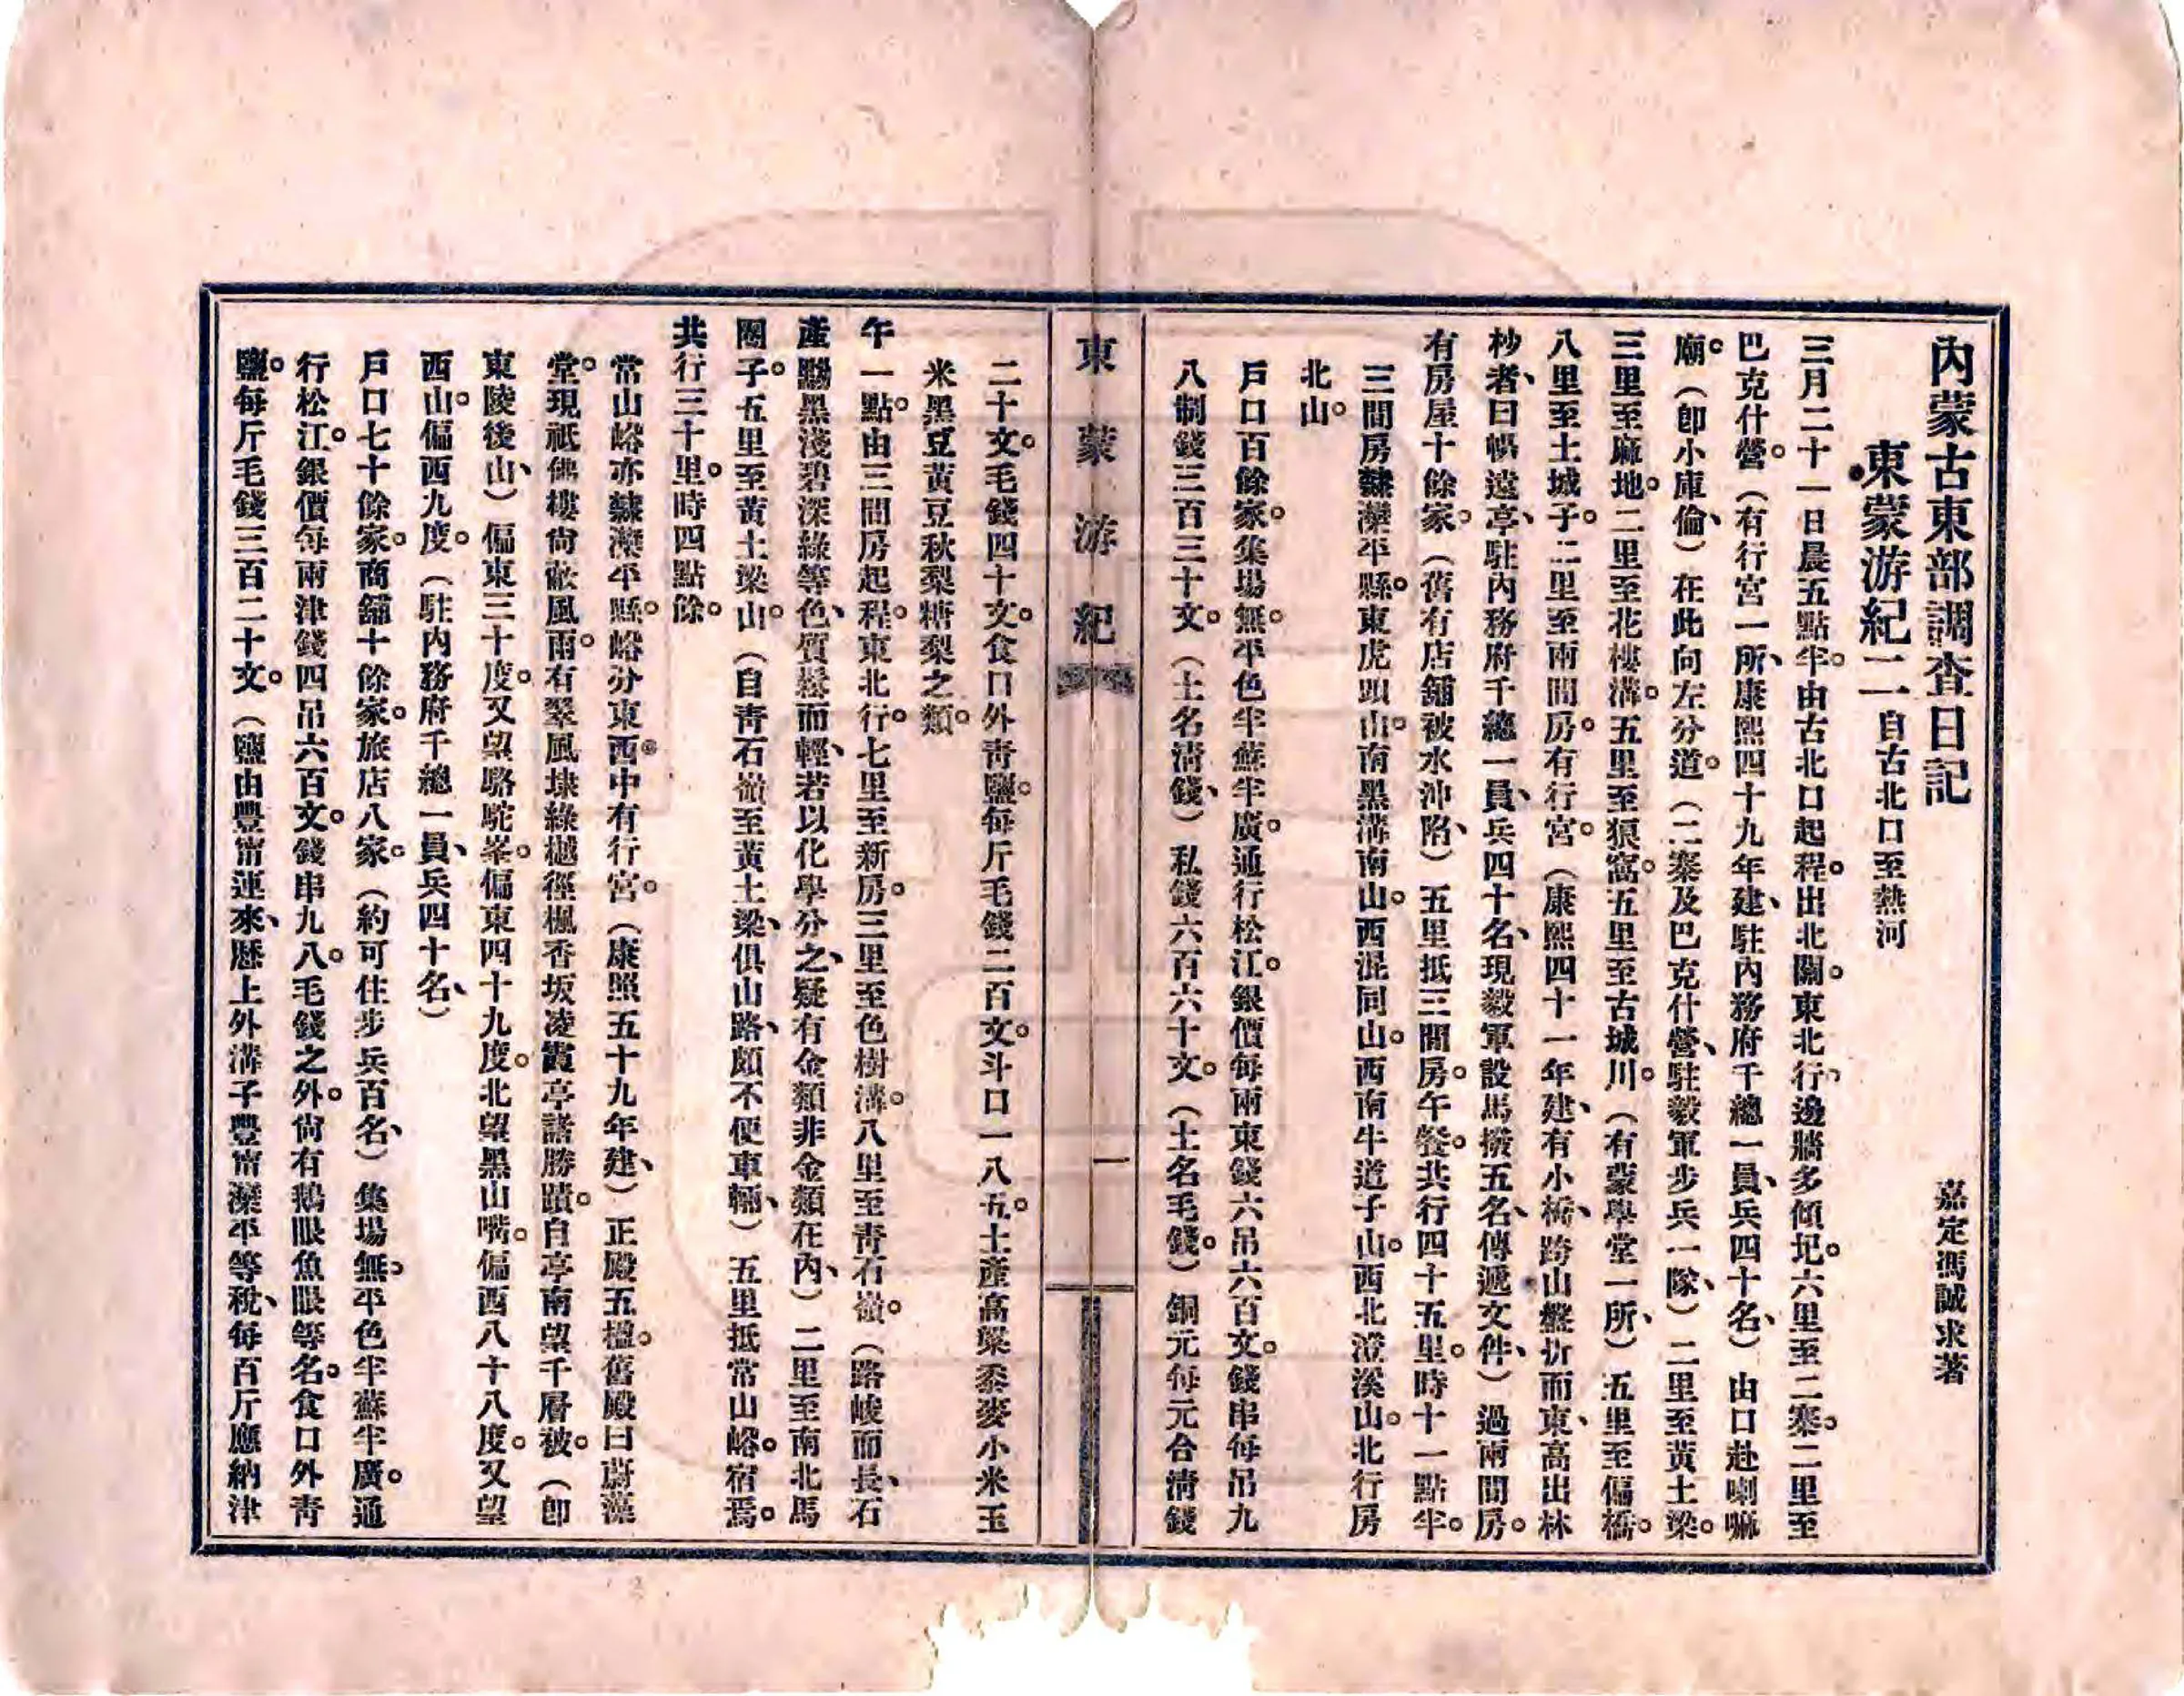 內蒙古東部調查日記
嘉定馮誠求著
東蒙游紀二 自古北口至熱河
三月二十一日晨五點半。由古北口起程。出北關。東北行、邊牆多傾圯。六里至二寨。二里至
巴克什營。(有行宮一所、康熙四十九年建、駐內務府千總一員、兵四十名、)由口赴喇嘛
廟。(卽小庫倫、)在此向左分道。(二寨及巴克什營、駐毅軍步兵一隊、)二里至黃土梁。
三里至麻地。二里至花樓溝。五里至狼窩。五里至古城川。(有蒙學堂一所、)五里至偏橋。
八里至土城子。二里至兩間房。有行宮。(康熙四十一年建、有小橋、跨山盤折而東、高出林
杪、者曰暢遠亭、駐內務府千總一員、兵四十名、現毅軍設馬撥五名、傳遞文件、)過兩間房。
有房屋十餘家。(舊有店舖被水沖陷、)五里抵三間房。午餐。共行四十五里。時十一點半。
三間房隸灤平縣。東虎頭山。南黑溝南山。西混同山。西南牛道子山。西北澄溪山。北行房
北山。
戶口百餘家。集場無。平色半蘇半廣。通行松江。銀價每兩東錢六吊六百文。錢串每吊九
八制錢三百三十文。(土名清錢、)私錢六百六十文。(土名毛錢。)銅元每元合清錢
東蒙游紀
一
二十文。毛錢四十文。食口外靑鹽。每斤毛錢二百文。斗口一八五。土產高粱黍麥小米玉
米黑豆黃豆秋梨糖梨之類。
午一點。由三間房起程。東北行。七里至新房。三里至色樹溝。八里至靑石嶺。(路峻而長、石
產黝黑淺碧深綠等色、質鬆而輕、若以化學分之、疑有金類非金類在內、)二里至南北馬
圈子。五里至黃土梁山。(自靑石嶺至黃土梁、俱山路、頗不便車輛、)五里抵常山峪。宿焉。
共行三十里。時四點餘。
常山峪亦隸灤平縣。峪分東西。中有行宮。(康照五十九年建、)正殿五楹。舊殿曰蔚藻
堂。現祇佛樓尙蔽風雨。有翠風埭綠樾徑楓香坂凌霞亭諸勝蹟。自亭南望千層被。(卽
東陵後山、)偏東三十度。又望駱駝峯。偏東四十九度。北望黑山嘴。偏西八十八度。又望
西山。偏西九度。(駐內務府千總一員、兵四十名、)
戶口七十餘家。商舖十餘家。旅店八家。(約可住步兵百名、)集場無。平色半蘇半廣。通
行松江。銀價每兩津錢四吊六百文。錢串九八。毛錢之外。尙有鵝眼魚眼等名。食口外靑
鹽。每斤毛錢三百二十文。(鹽由豐甯運來、歷上外溝子豐甯灤平等稅、每百斤應納津